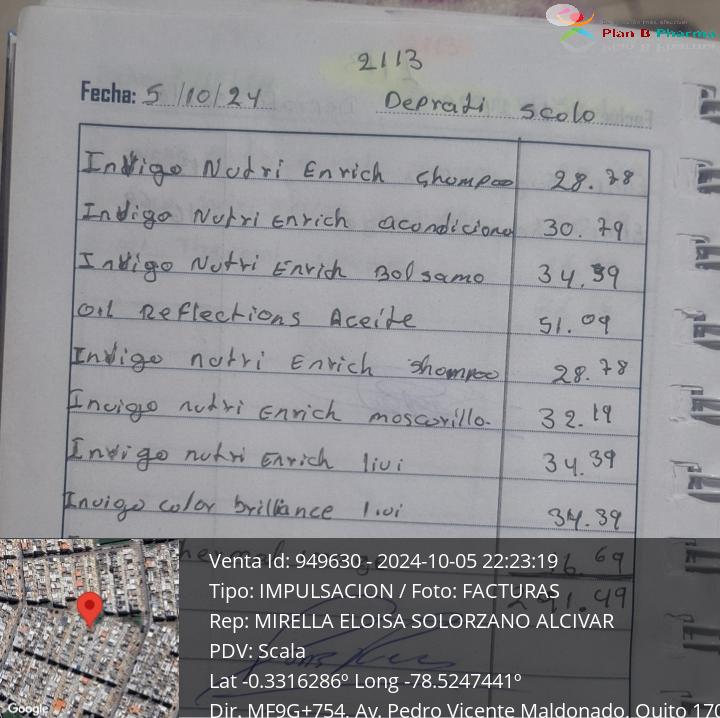 Plan B Pharma
2113
Fecha: 5/10/24 Deprati Scolo
Invigo Nutri Enrich shampoo 28.78
Invigo Nutri Enrich acondiciona 30.79
Invigo Nutri Enrich Bolsamo 34.39
Oil Reflections Aceite 51.09
Invigo nutri Enrich shampoo 28.78
Invigo nutri Enrich moscorillo. 32.19
Invigo nutri Enrich livi 34.39
Invigo color brilliance livi 34.39
thermal 16.69
291.49
Venta Id: 949630 - 2024-10-05 22:23:19
Tipo: IMPULSACION / Foto: FACTURAS
Rep: MIRELLA ELOISA SOLORZANO ALCIVAR
PDV: Scala
Lat -0.3316286º Long -78.5247441º
Dir. MF9G+754, Av. Pedro Vicente Maldonado, Quito 170
Google